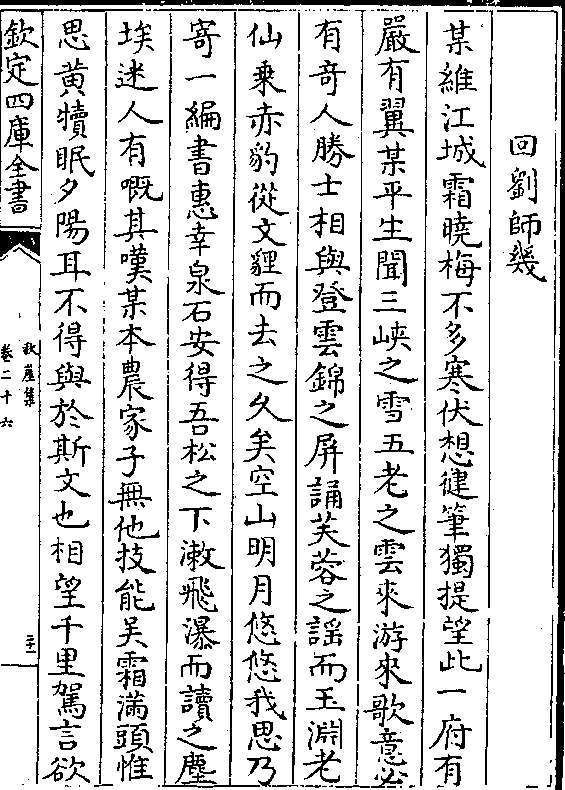 回劉師幾
某維江城霜曉梅不多寒伏想健筆獨提望此一府有
嚴有翼某平生聞三峽之雪五老之雲來游來歌意必
有奇人勝士相與登雲錦之屏誦芙蓉之謡而玉淵老
仙乗赤豹從文貍而去之乆矣空山明月悠悠我思乃
寄一編書惠幸泉石安得吾松之下漱飛瀑而讀之塵
埃迷人有嘅其嘆某本農家子無他技能吴霜滿頭惟
思黄犢眠夕陽耳不得與於斯文也相望千里駕言欲
欽定四庫全書
秋崖集
卷二十六